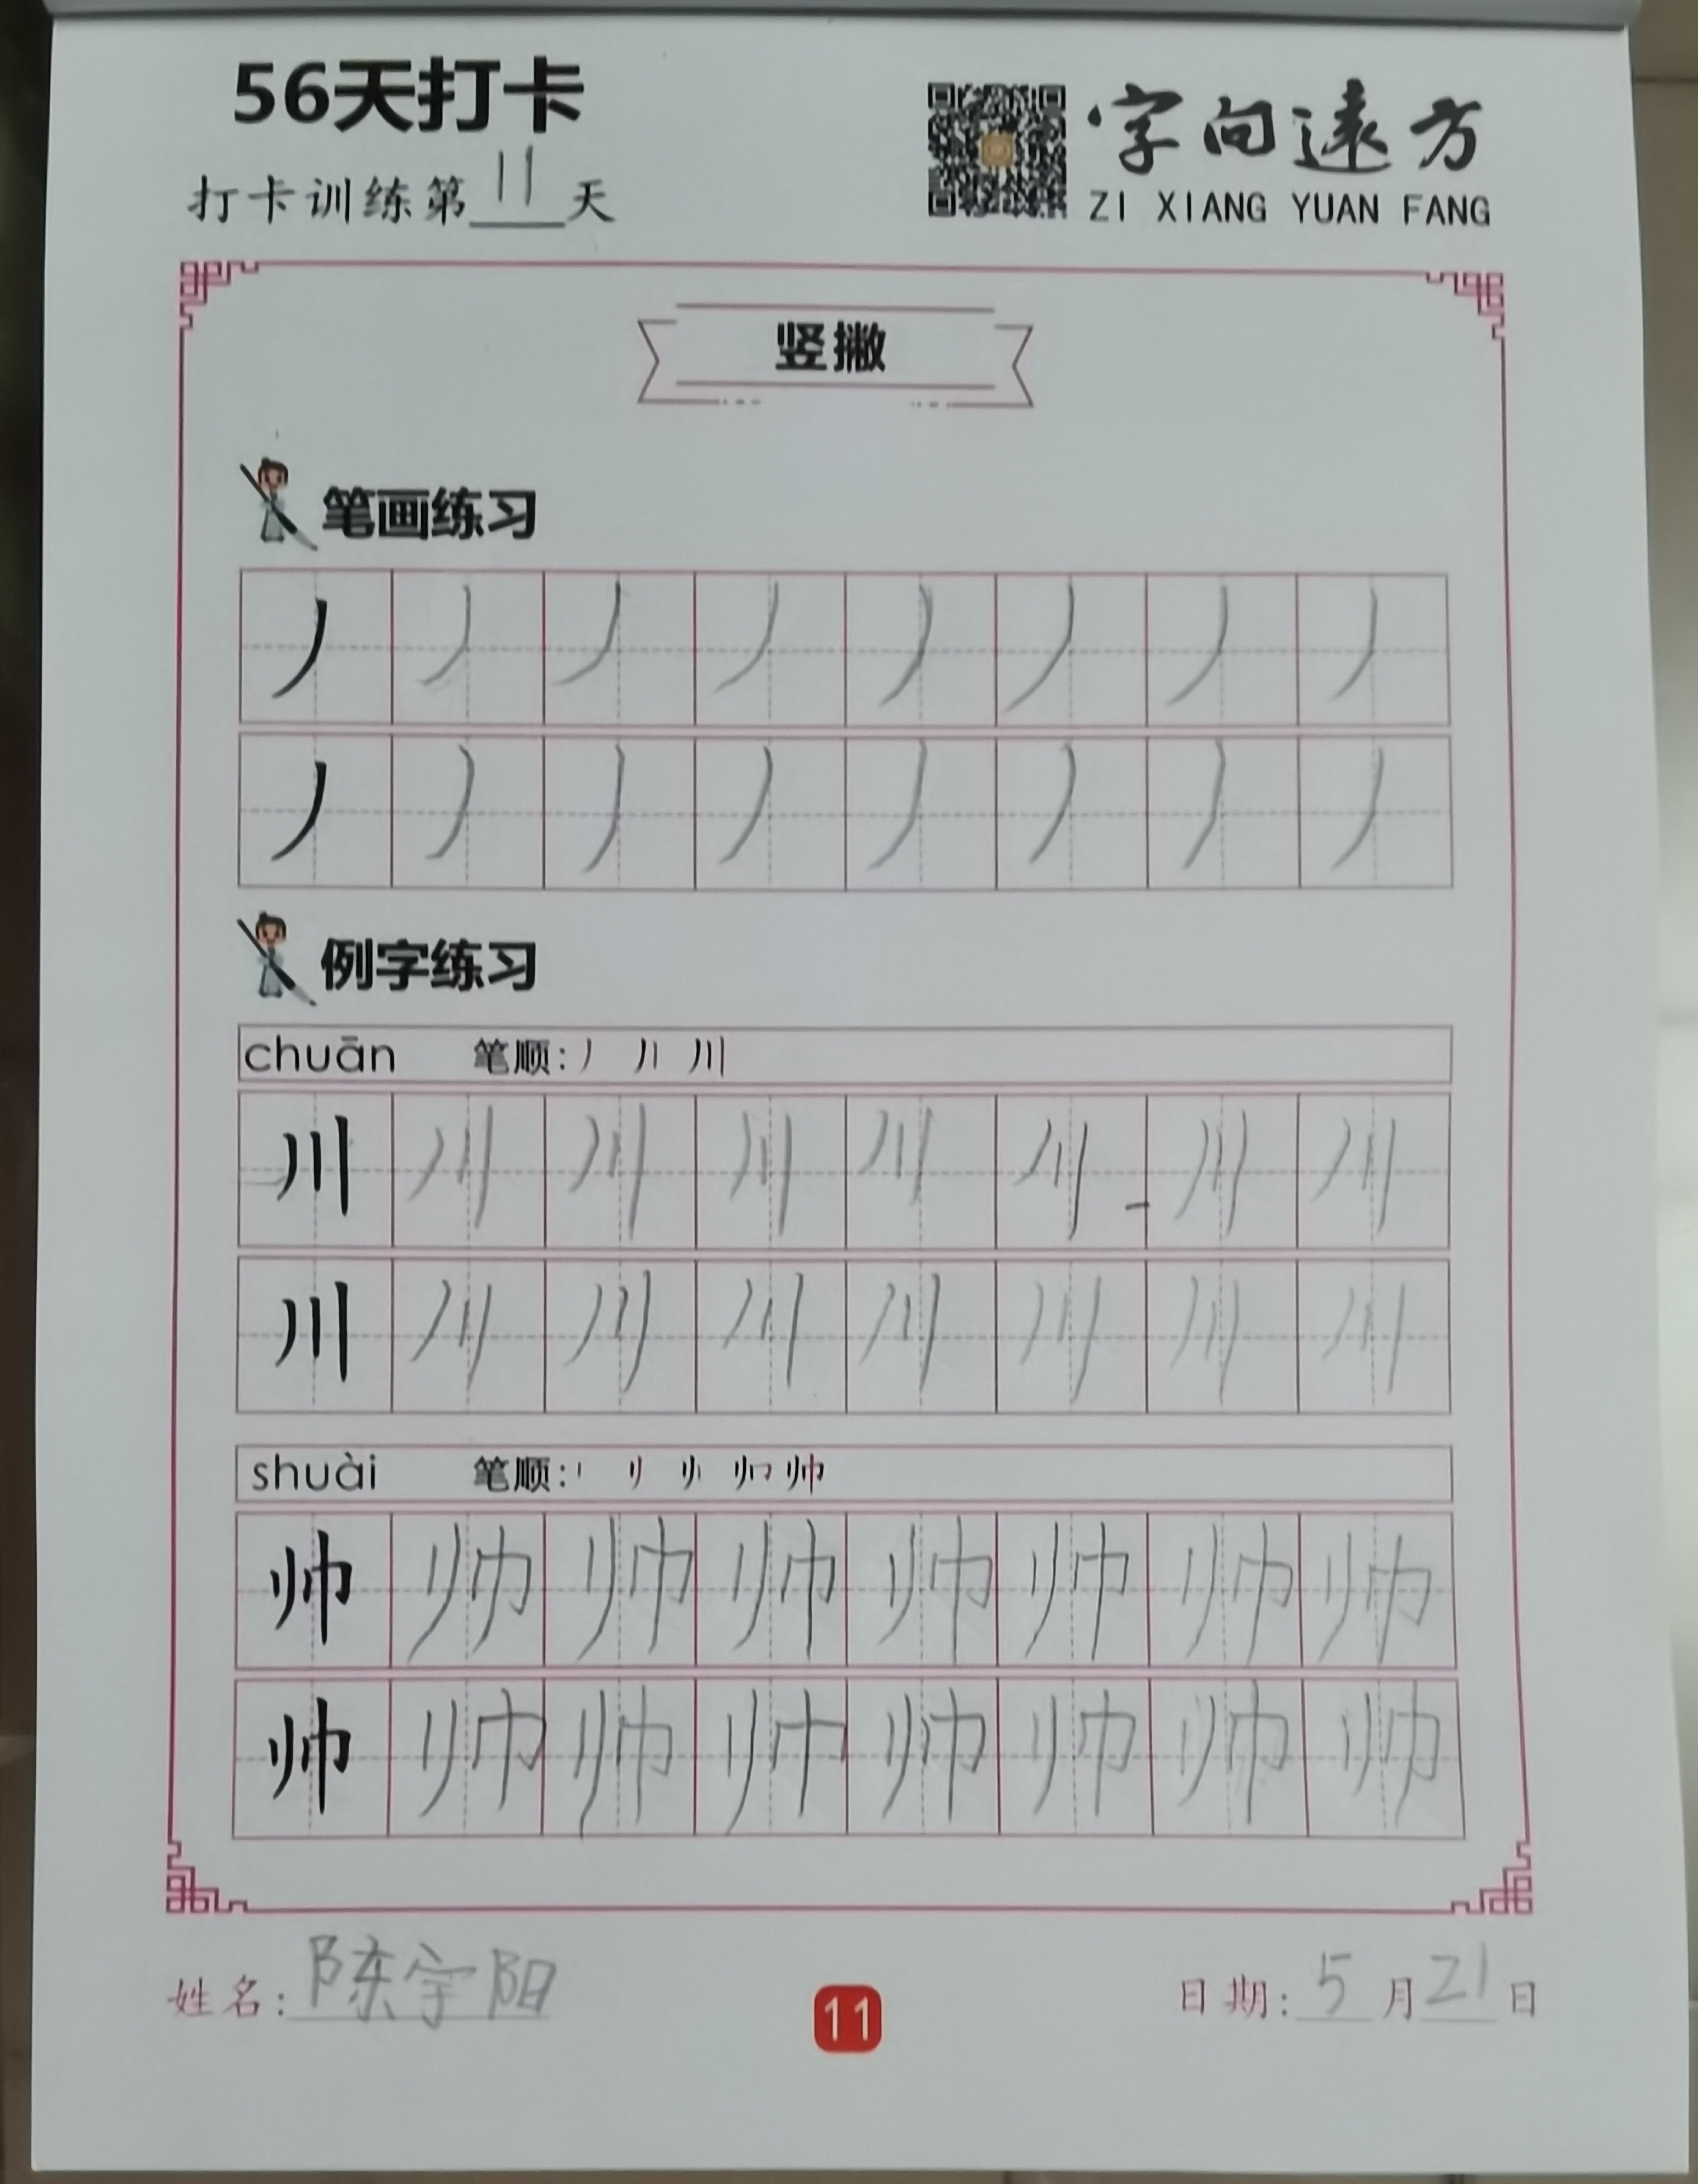 56天打卡
打卡训练第11天
字向远方
ZI XIANG YUAN FANG
竖撇
笔画练习
丿 丿 丿 丿 丿 丿 丿 丿
丿 丿 丿 丿 丿 丿 丿 丿
例字练习
chuān 笔顺: 丿 丿丨 川
川 川 川 川 川 川 川 川
川 川 川 川 川 川 川 川
shuài 笔顺: 丨 刂 帅
帅 帅 帅 帅 帅 帅 帅 帅
帅 帅 帅 帅 帅 帅 帅 帅
姓名: 陈宇阳
11
日期: 5月21日